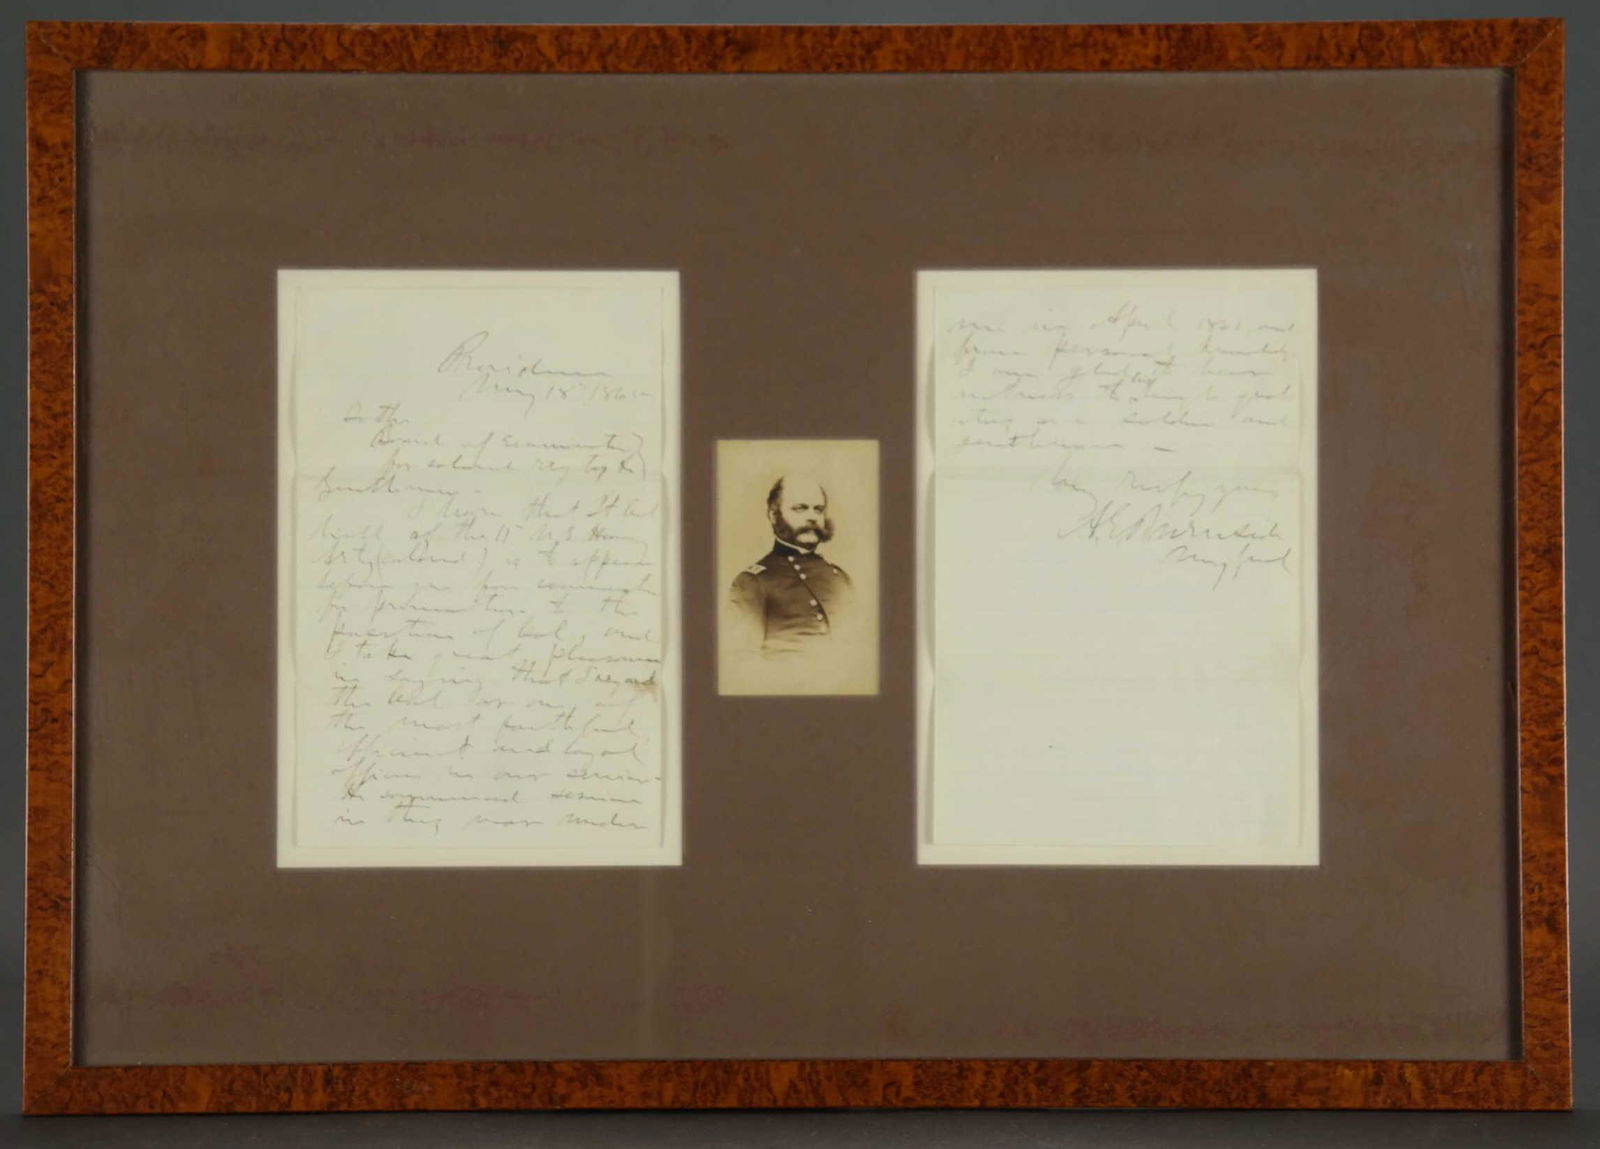 Providence
May 18th 1865
To the
Board of Examination
for colored reg tps &c
Gentlemen -
I learn that Lt Col
of the 11th U.S. Heavy
Arty (colored) is to appear
before you for
for promotion to the
position of Col, and
I take great pleasure
in saying that I regard
the Col as one of
the most faithful
efficient and loyal
officers in our service -
He commenced service
in this war under
me in April 1861 and
from personal knowledge
I am glad to bear
witness to his good
as a soldier and
gentleman -
Very
A E Burnside
Maj Genl